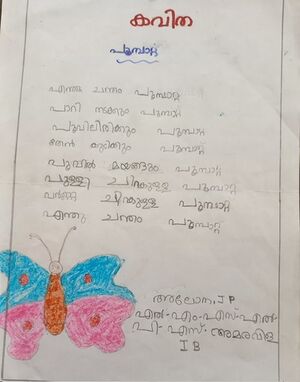 കവിത
പൂമ്പാറ്റ
എന്തു ചന്തം പൂമ്പാറ്റ
പാറി നടക്കും പൂമ്പാറ്റ
പൂവിലിരിക്കും പൂമ്പാറ്റ
തേൻ കുടിക്കും പൂമ്പാറ്റ
പൂവിൽ മയങ്ങും പൂമ്പാറ്റ
പുള്ളി ചിറകുള്ള പൂമ്പാറ്റ
വർണ്ണ ചിറകുള്ള പൂമ്പാറ്റ
എന്തു ചന്തം പൂമ്പാറ്റ
അലോന. J P
എൽ-എം-എസ്-എൽ-
പി-എസ്-അമരവിള
I B